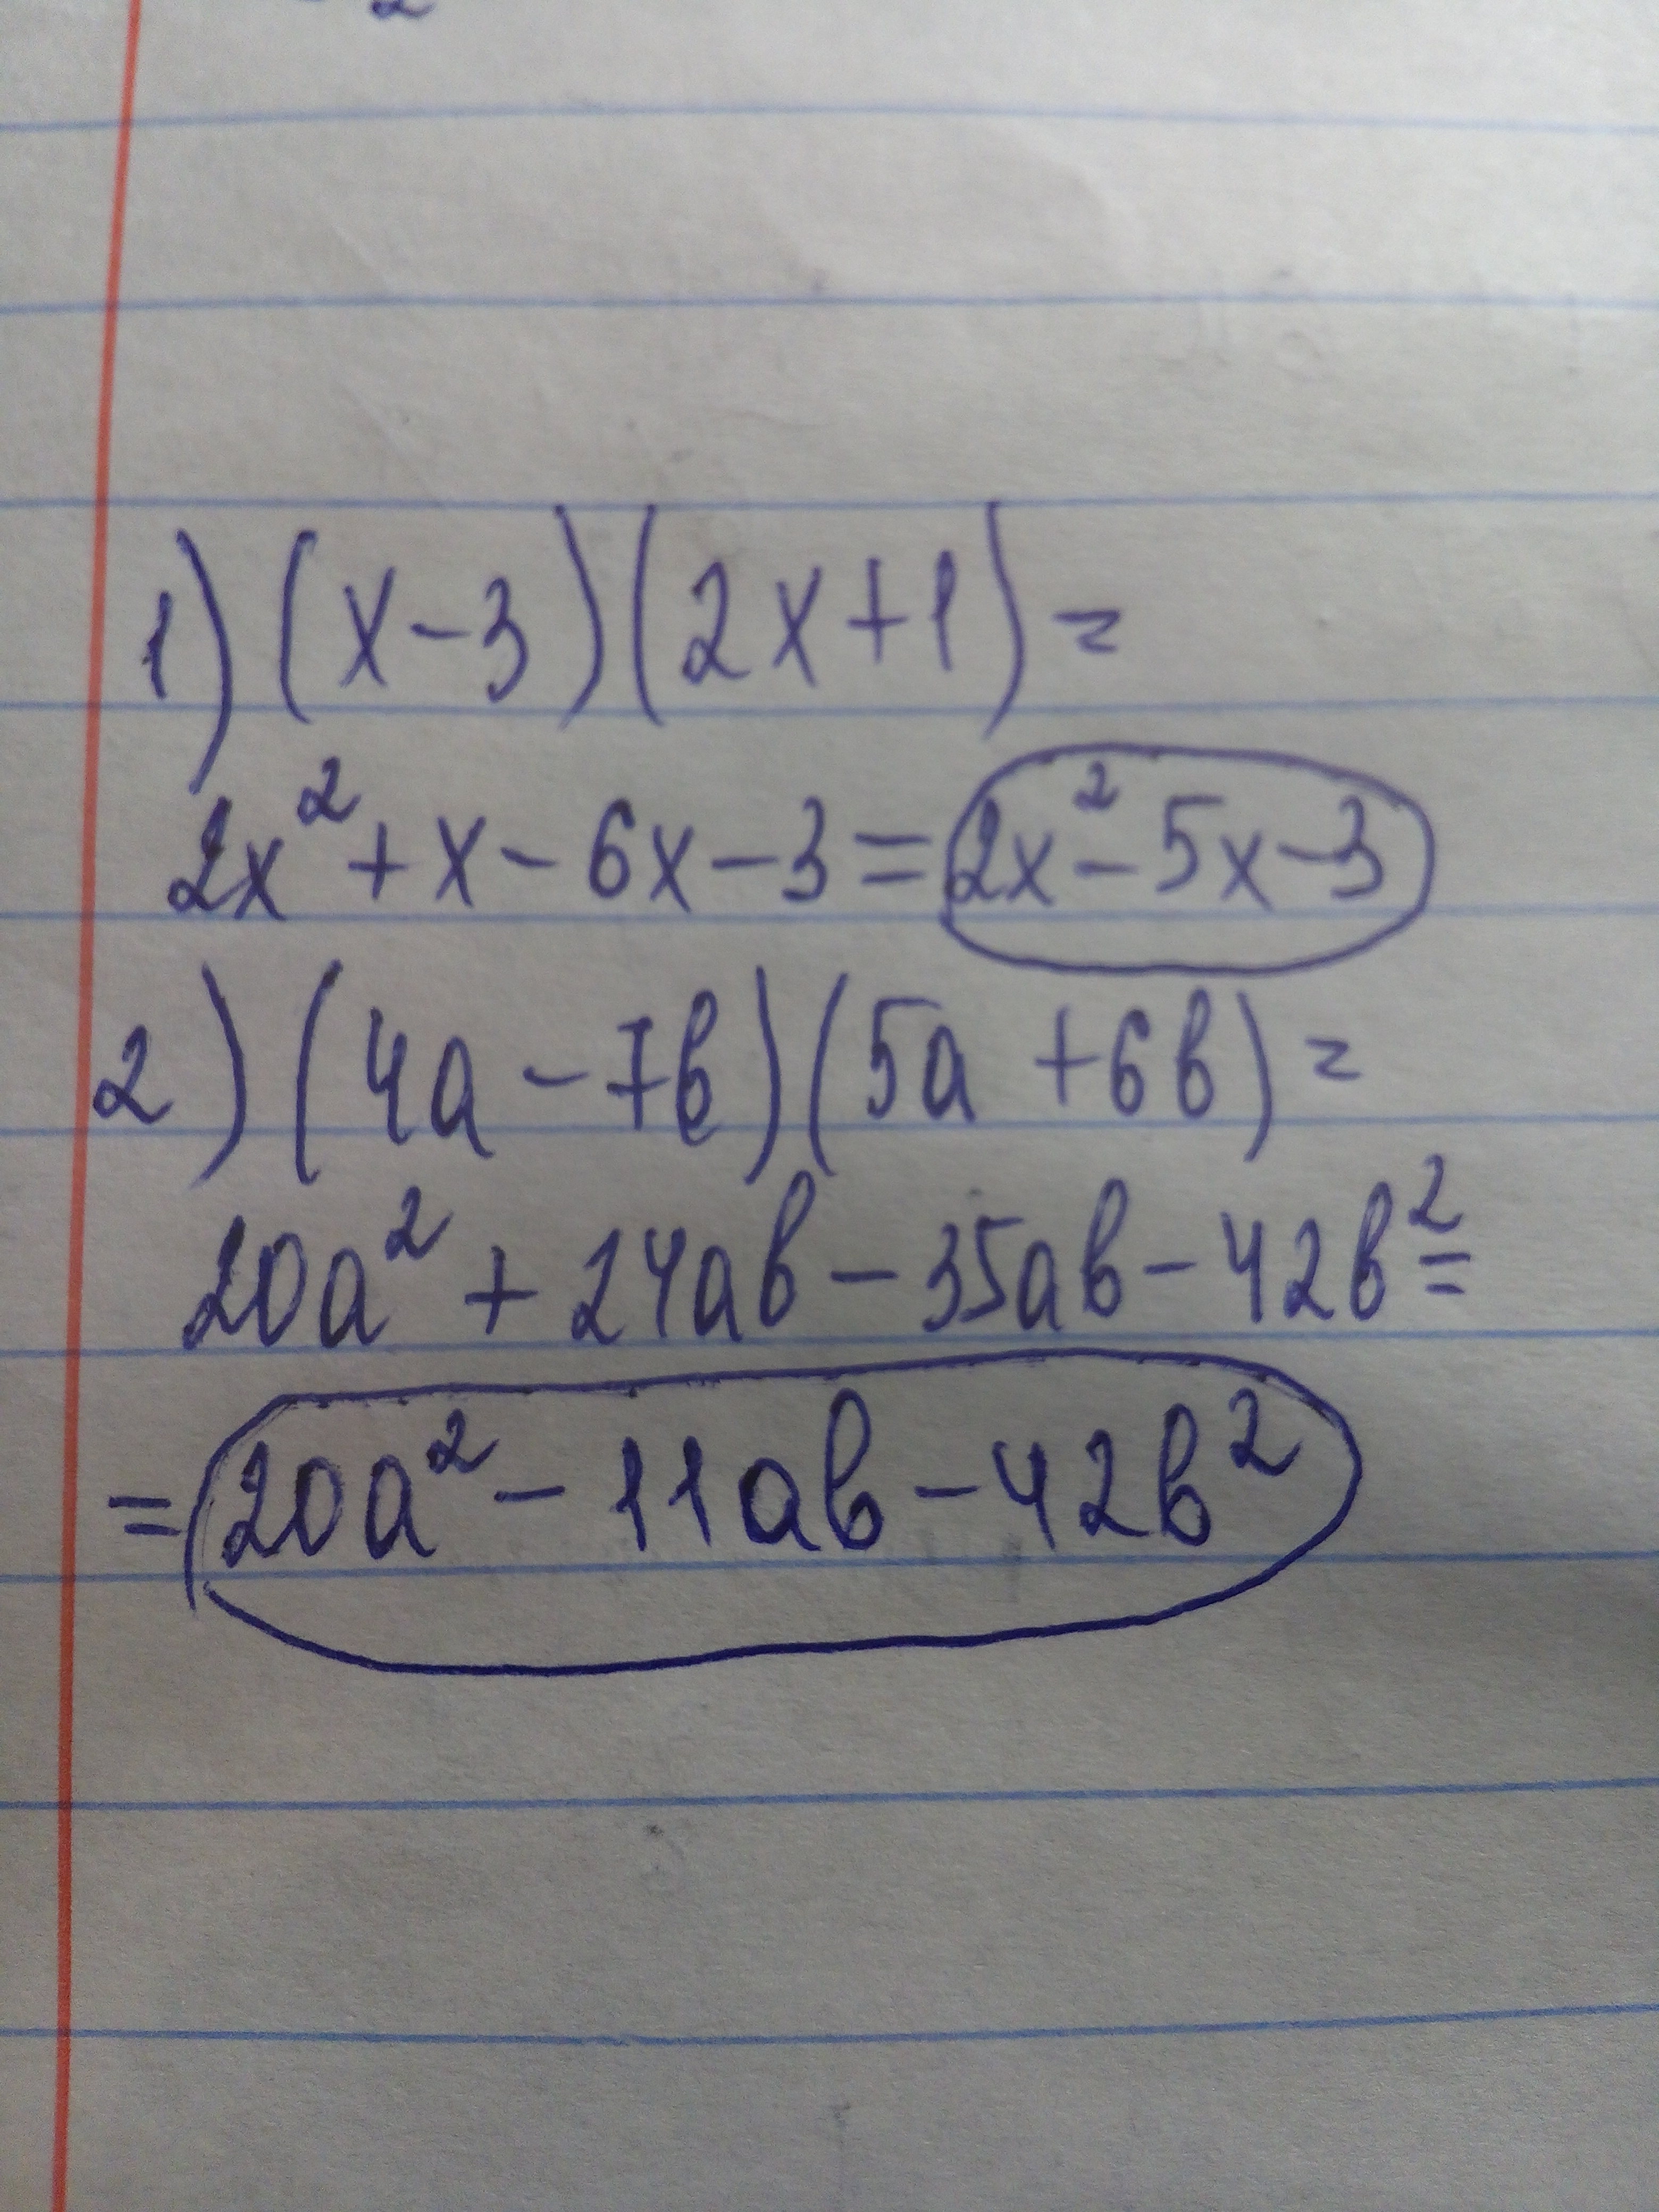 2
1) (x-3)(2x+1)=
2x²+x-6x-3=2x²-5x-3
2) (4a-7b)(5a+6b)=
20a²+24ab-35ab-42b²=
=20a²-11ab-42b²